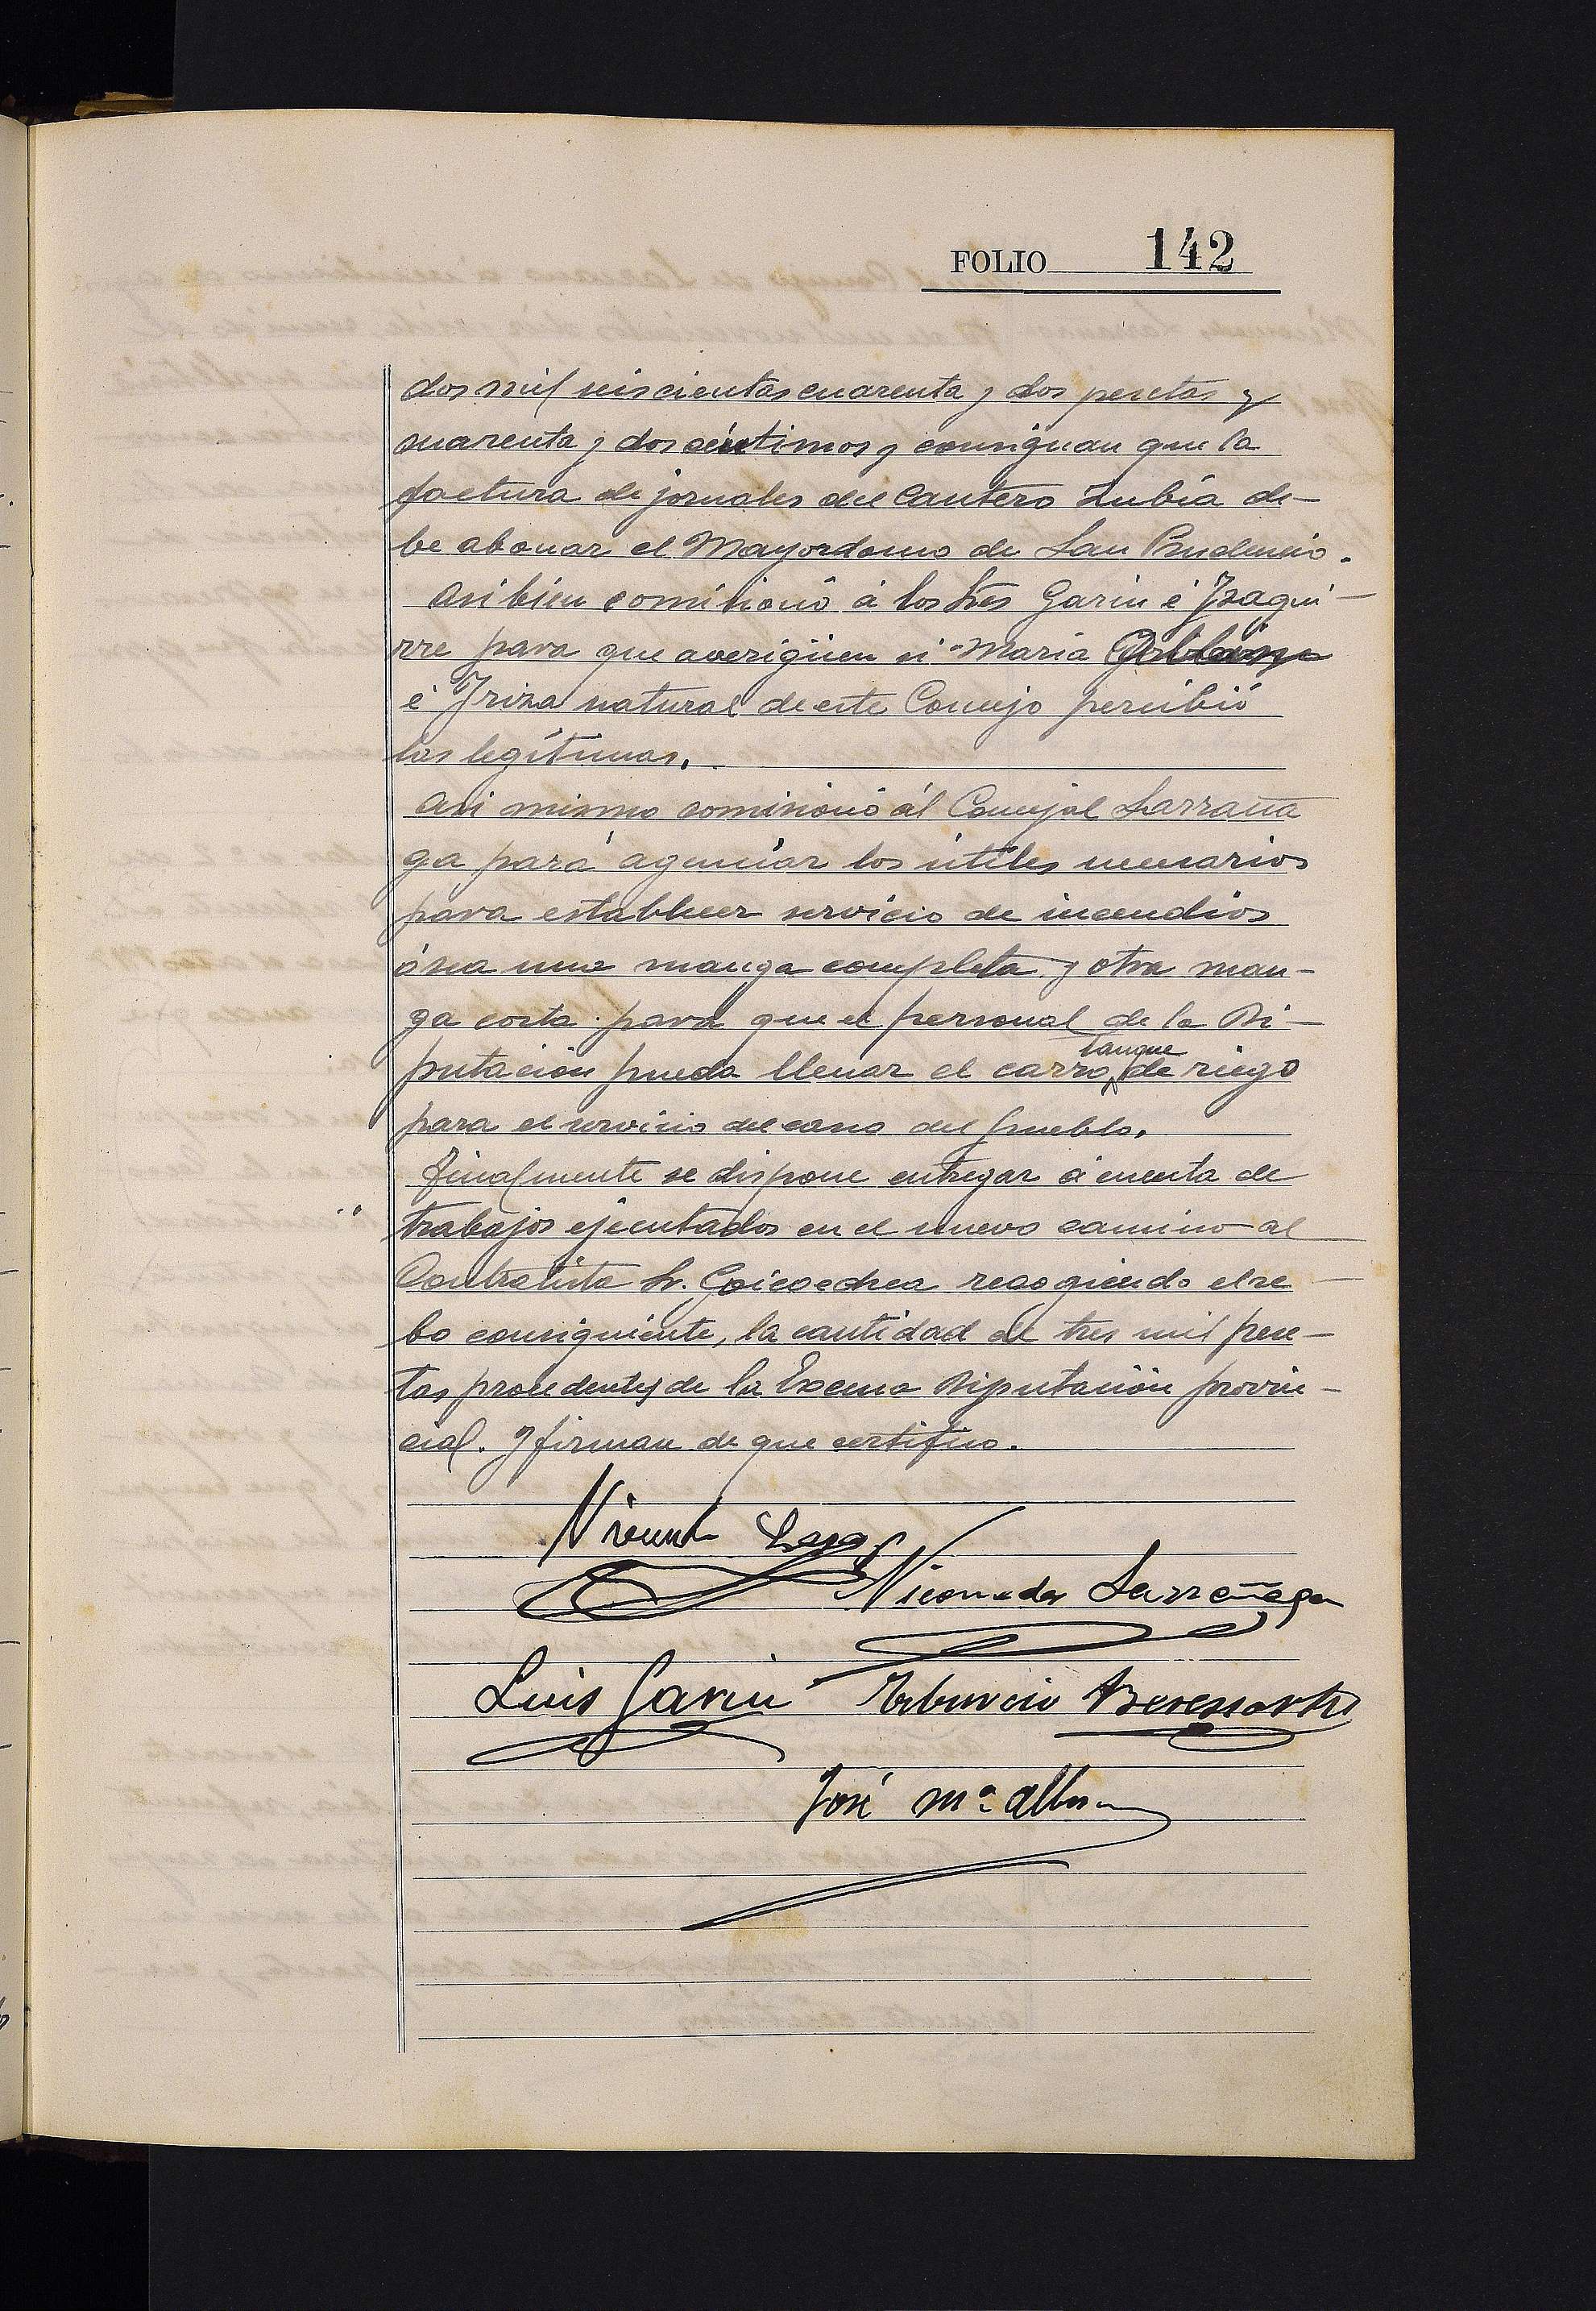 FOLIO 142
dos mil seiscientas cuarenta y dos pesetas y
cuarenta y dos céntimos y consignan que la
factura de jornales del Cantero Zubia de-
be abonar el Mayordomo de San Prudencio.
Asi bien comisionó á los Sres Garin é Izagui-
rre para que averigüen si Maria
é Iriza natural de este Concejo percibió
las legítimas.
Asi mismo comisionó ál Concejal Larraña
ga para agenciar los útiles necesarios
para establecer servicio de incendios
ósea una manga completa y otra man-
ga corta para que el personal de la Di-
tanque
putación pueda llenar el carro de riego
para el servicio del caso del pueblo.
Finalmente se dispone entregar á cuenta de
trabajos ejecutados en el nuevo camino al
Contratista Sr. Goicoechea recogiendo el re
bo consiguiente, la cantidad de tres mil pese-
tas procedentes de la Excma Diputación provin-
cial. Y firman de que certifico.
Vicente
Nicomedes Larrañaga
Luis Garin Tiburcio
José Mª